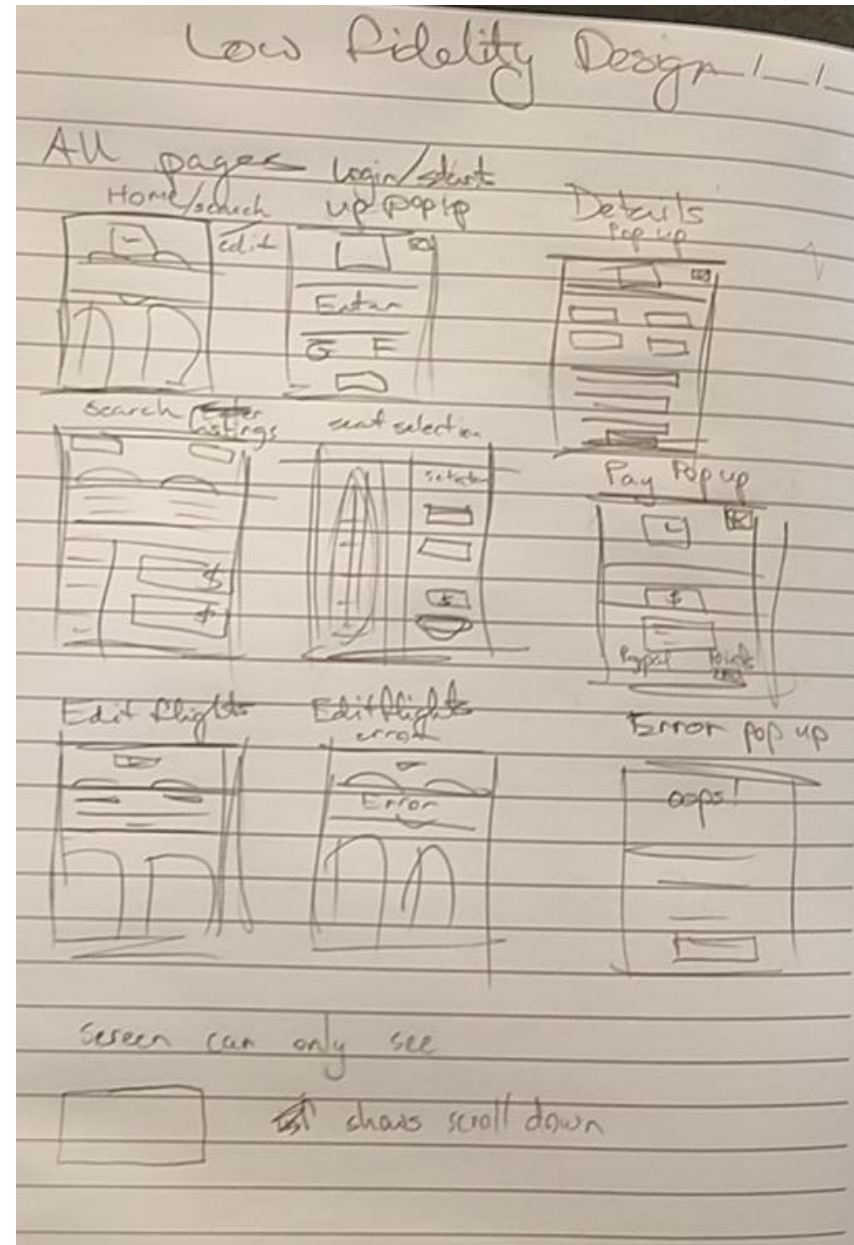 Low Fidelity Design
All pages
Home/search
edit
Login/start
up pop up
Enter
G F
Details
Pop up
Search
Listings
$
$
seat selection
$
Pay Pop up
$
Paypal Points
Edit flights
Edit flights
error
Error
Error pop up
oops!
screen can only see
shows scroll down